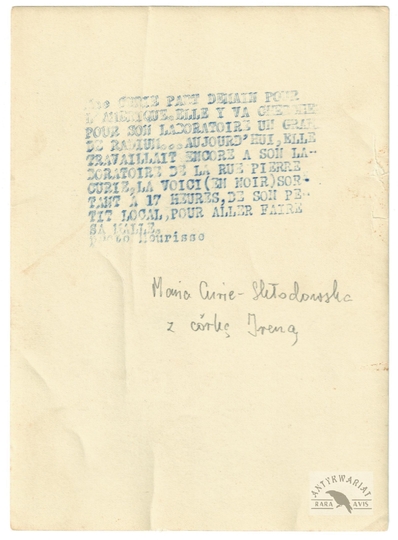 Mme CURIE PART DEMAIN POUR
L'AMERIQUE.ELLE Y VA CHERCHER
POUR SON LABORATOIRE UN GRAM
DE RADIUM...AUJOURD'HUI,ELLE
TRAVAILLAIT ENCORE A SON LA-
BORATOIRE DE LA RUE PIERRE
CURIE,LA VOICI(EN NOIR)SOR-
TANT A 17 HEURES,DE SON PE-
TIT LOCAL,POUR ALLER FAIRE
SA MALLE.
Photo Mourisso
Maria Curie-Skłodowska
z córką Ireną
ANTYKWARIAT
RARA AVIS